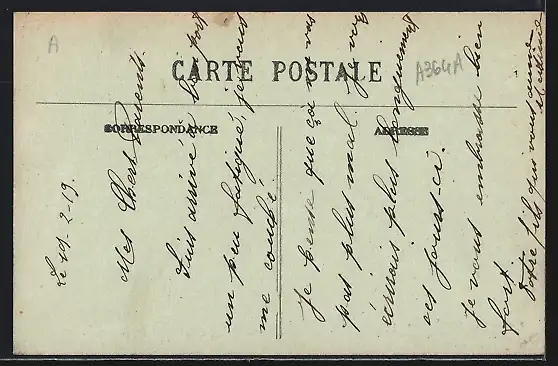 A
CARTE POSTALE
A364A
CORRESPONDANCE
ADRESSE
Le 19-2-19.
Mes Chers Parents.
Suis arrivé à bon port
un peu fatigué, je vais
me couché.
Je pense que ça ne va
pas plus mal. Je vous
écrirais plus longuement
ces jours-ci.
Je vous embrasse bien
fort.
Votre fils qui vous aime